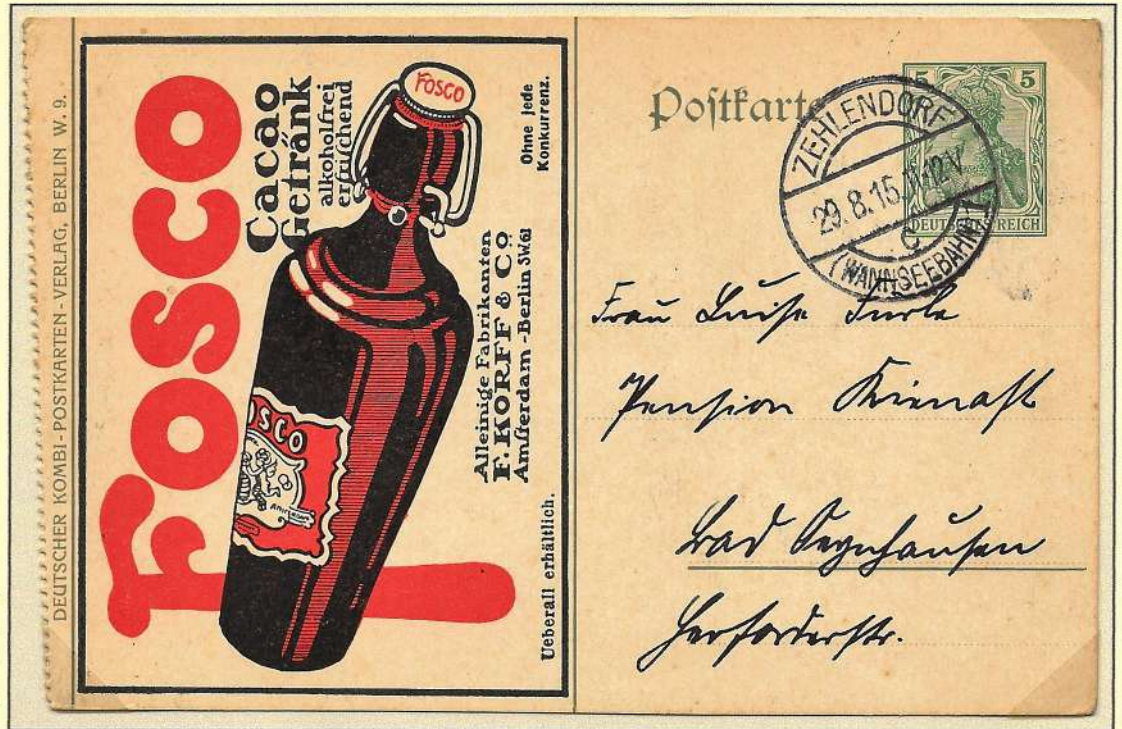 DEUTSCHER KOMBI-POSTKARTEN-VERLAG, BERLIN W. 9.
FOSCO
Cacao
Getränk
alkoholfrei
erfriſchend
Ohne jede
Konkurrenz.
FOSCO
FOSCO
Alleinige Fabrikanten
F. KORFF & CO
Amſterdam-Berlin SW.61
Ueberall erhältlich.
Poſtkarte
5 5
DEUTSCHES REICH
ZEHLENDORF
29.8.15.11-12V
c
(WANNSEEBAHN)
Frau Luise
Pension Kienast
Bad Oeynhausen
Herforderstr.